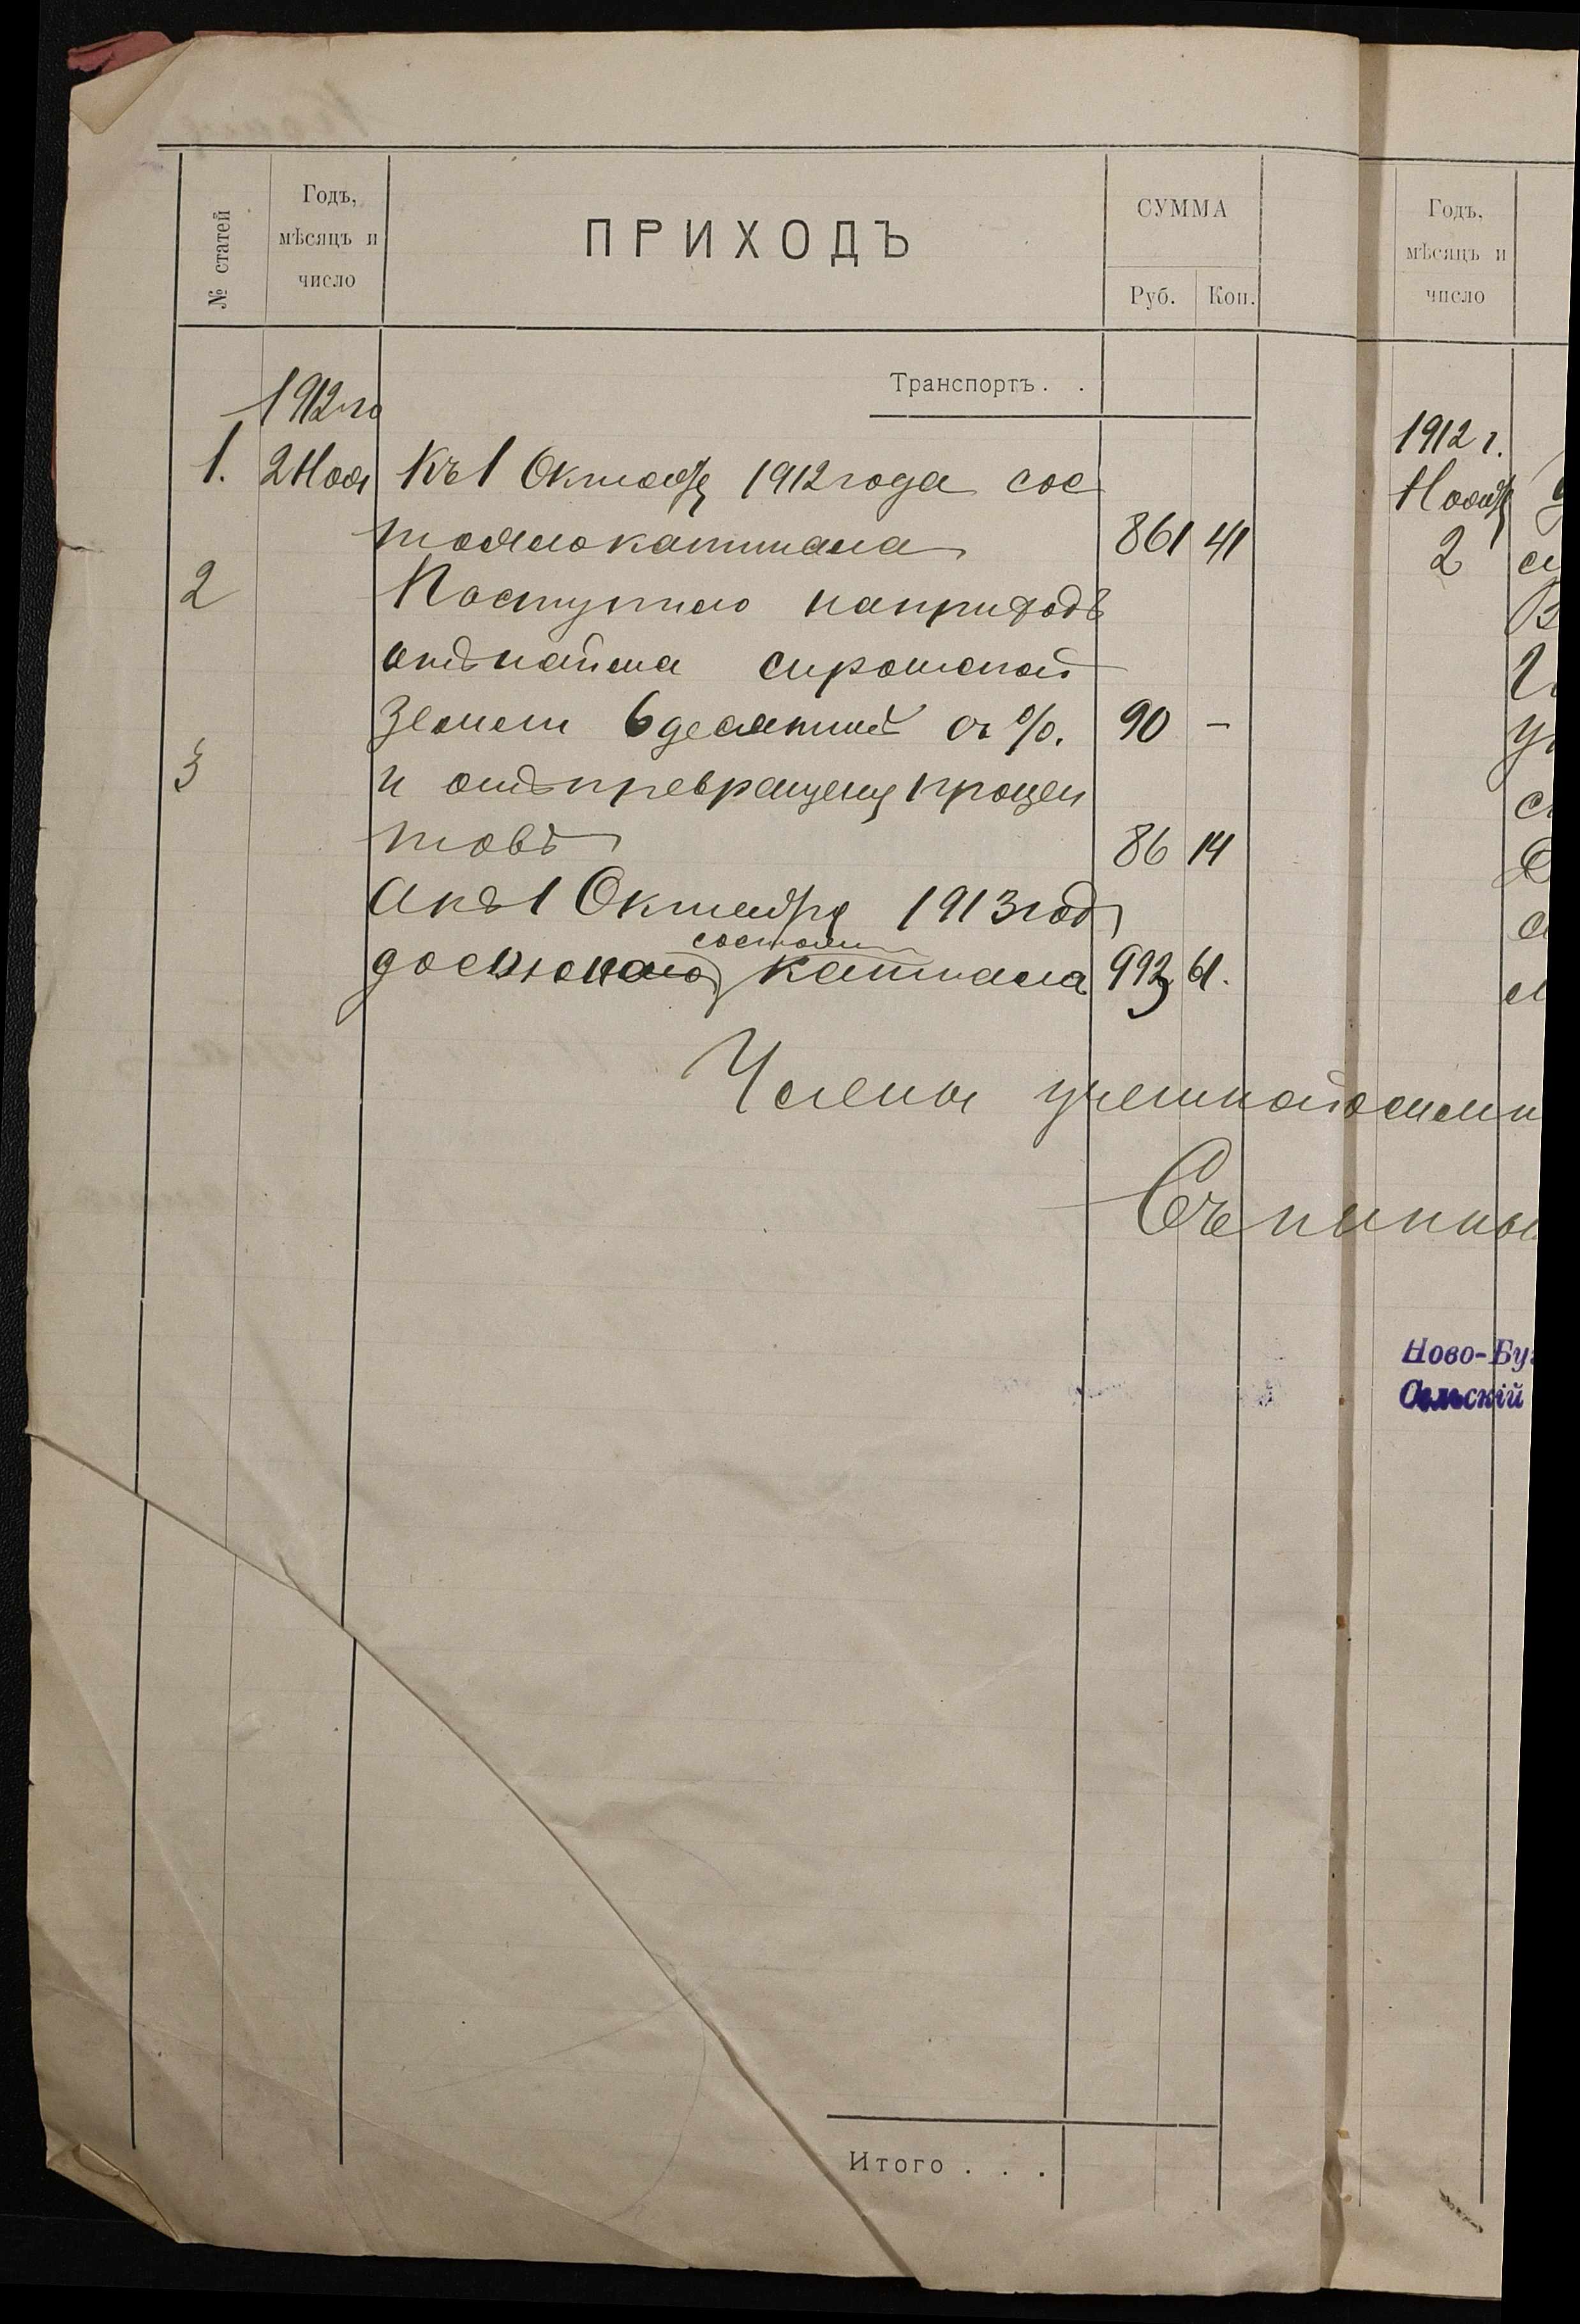 № статей
Годъ,
мѣсяцъ и
число
ПРИХОДЪ
СУММА
Руб.
Коп.
Транспортъ . .
1912 го
1. 2 Ноя Къ 1 Октября 1912 года сос
тояло капитала 861 41
2 Поступило на приходъ
отъ найма сиротской
земли 6 десятинъ съ %. 90 —
3 и отъ превращены процен
товъ 86 14
а къ 1 Октября 1913 год
состоли
капитала 993 61.
Члены учетной
Съ
Итого . . .
Годъ,
мѣсяцъ и
число
1912 г.
Ноябр
2
Ново-Буг
Сельскій